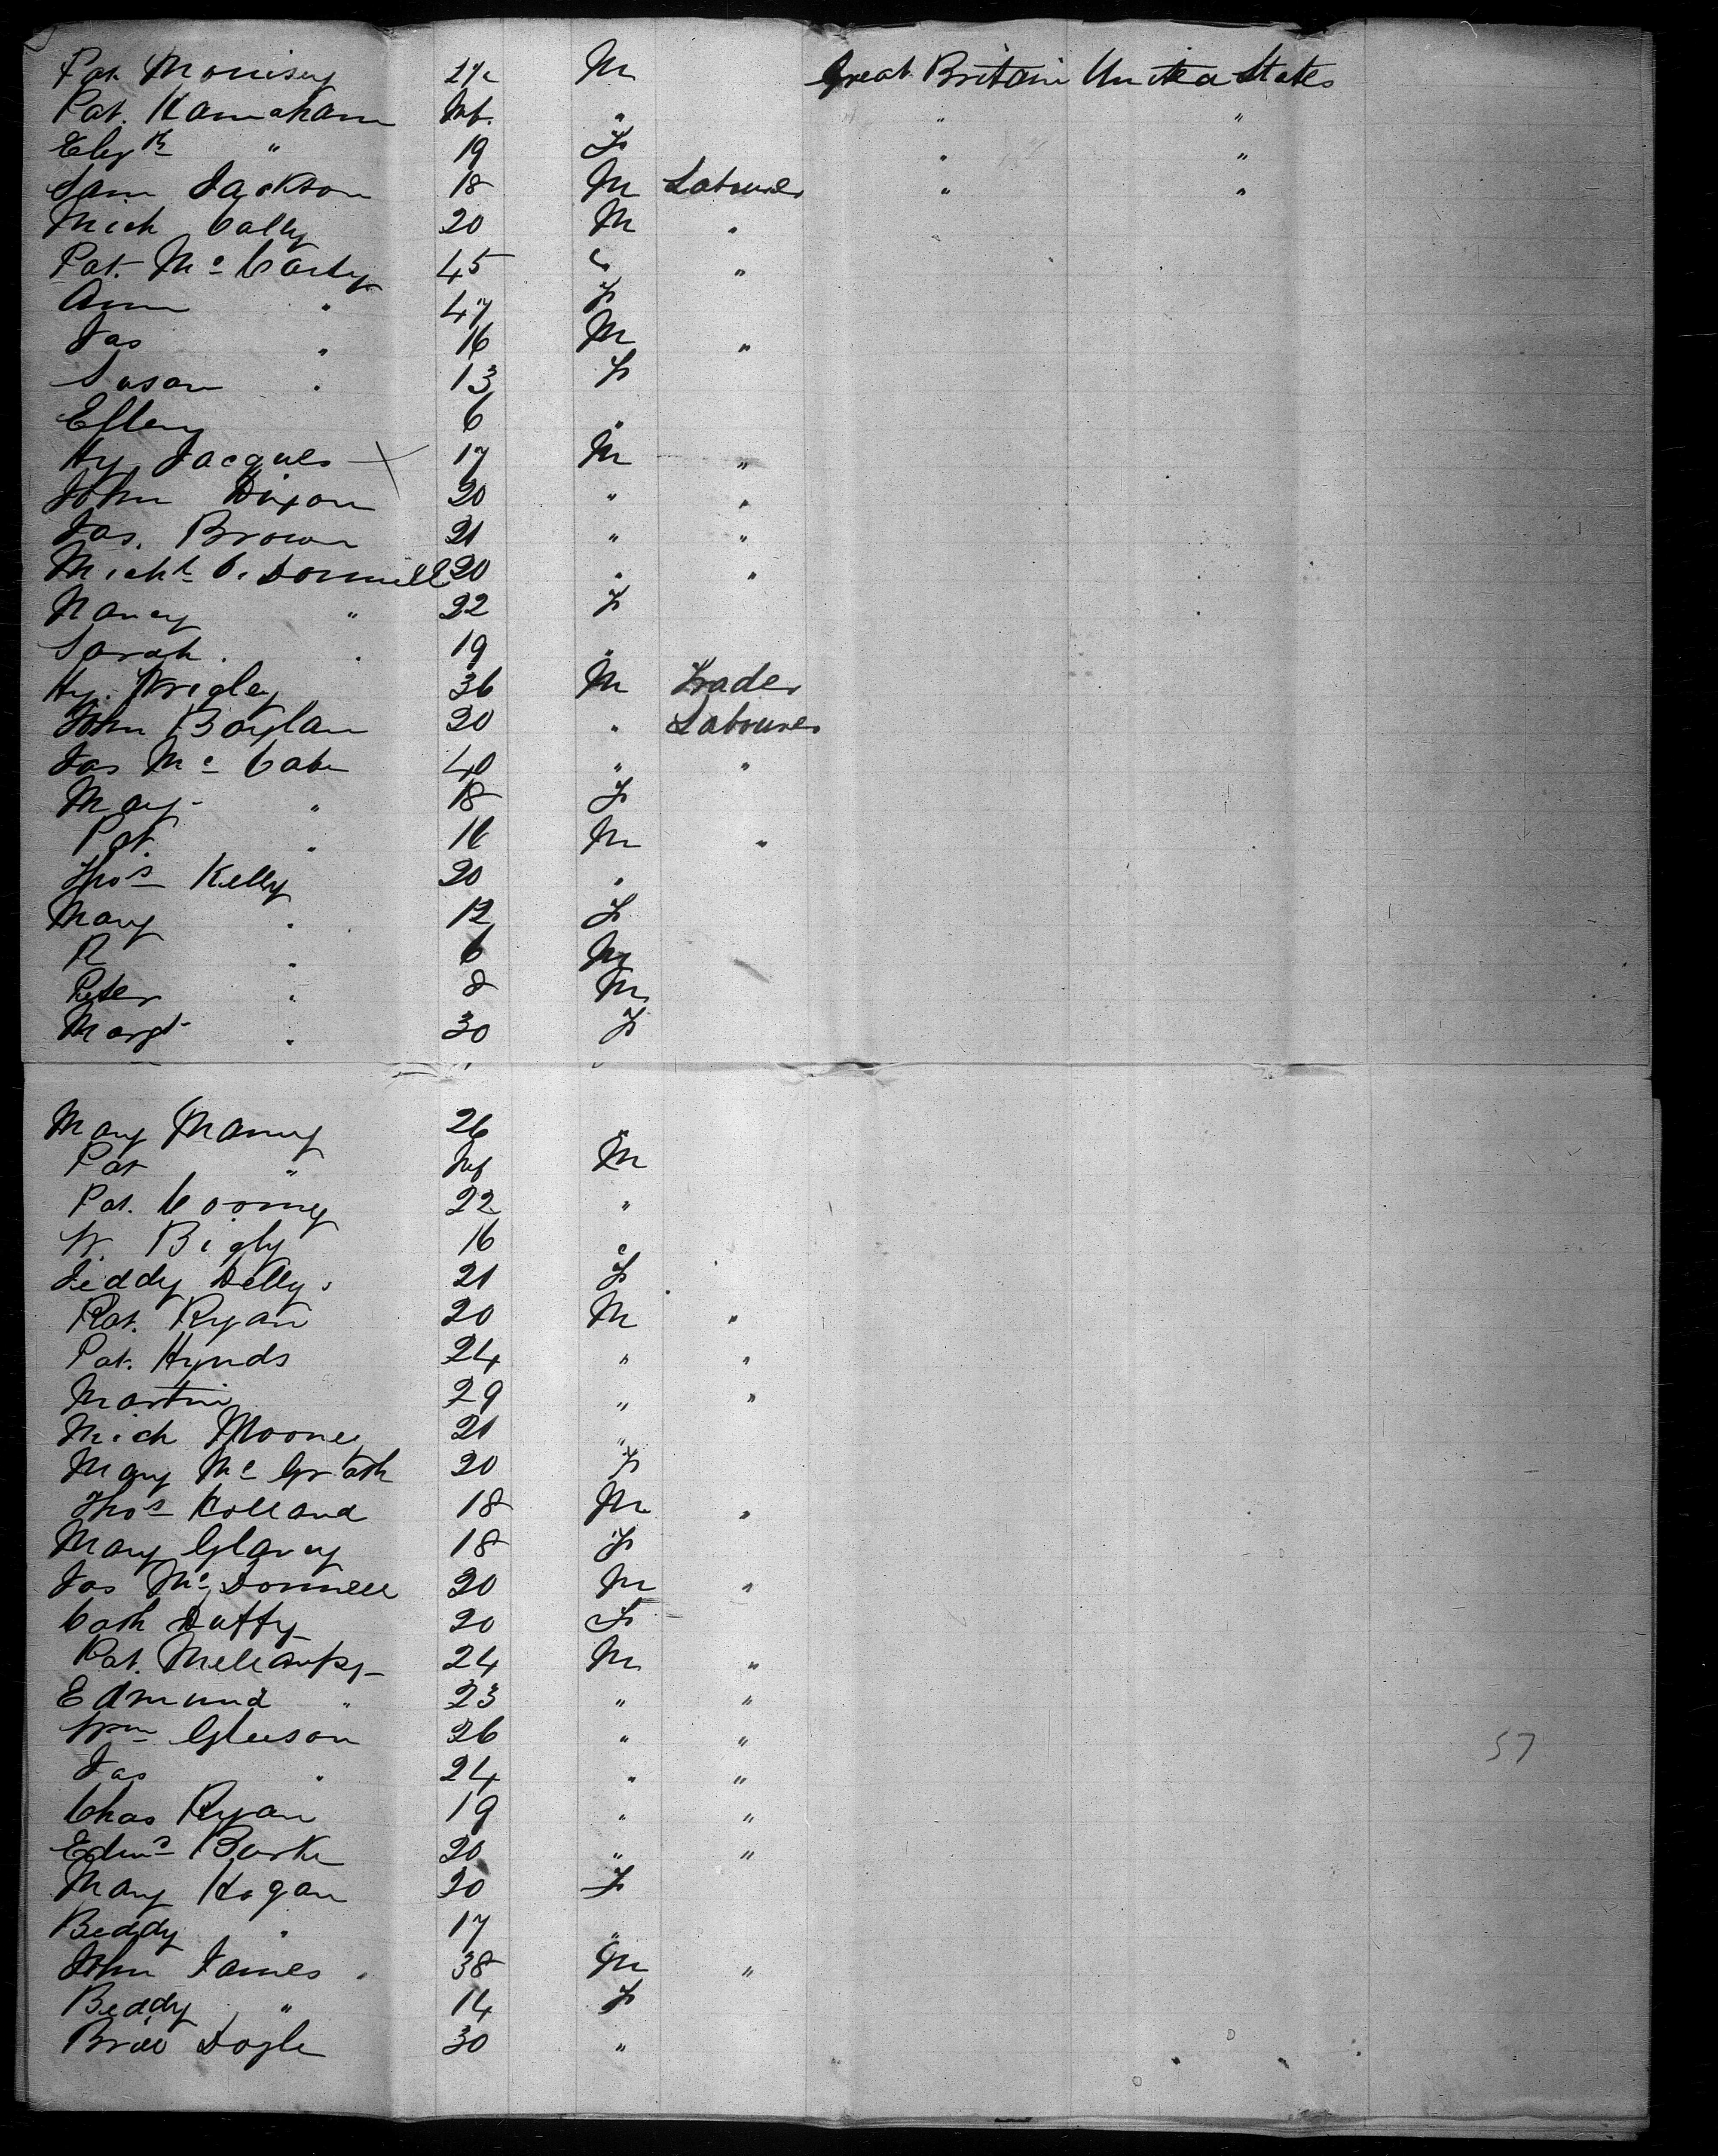 Pat. Morrisey 2½ M Great Britain United States
Pat. Kernaham Inf. " " "
Elizth " 19 F " "
Sam Jackson 18 M Labourer " "
Mich Cally 20 M "
Pat. Mc Carty 45 " "
Ann " 47 F
Jas " 16 M "
Susan " 13 F
Elleny 6 "
Hy. Jacques 17 M "
John Dixon 20 " "
Jas. Brown 21 " "
Michl O. Donnell 20 " "
Nancy " 22 F
Sarah " 19 "
Hy. Wrigley 36 M Trader
John Boylan 20 " Labourer
Jas Mc Cabe 40 " "
Mary " 18 F
Pat. " 16 M "
Thos Kelly 20 "
Mary " 12 F
R " 6 M
Peter " 8 M
Margt " 30 F
Mary Manny 26 "
Pat " Inf M
Pat. Cormey 22 "
W. Bigly 16 "
Jeddy Delly 21 F
Pat. Ryan 20 M "
Pat. Hynds 24 " "
Martin 29 " "
Mich Mooney 21 "
Mary Mc Grath 20 F
Thos Holland 18 M "
Mary Glavey 18 F
Jas McDonnell 20 M "
Cath Duffy 20 F
Pat. 24 M "
Edmund " 23 " "
Wm Gleeson 26 " "
Jas " 24 " "
Chas Ryan 19 " "
Edmd Burke 20 " "
Mary Hogan 20 F
Beddy " 17 "
John James 38 M "
Beddy " 14 F
Doyle 30 "
57